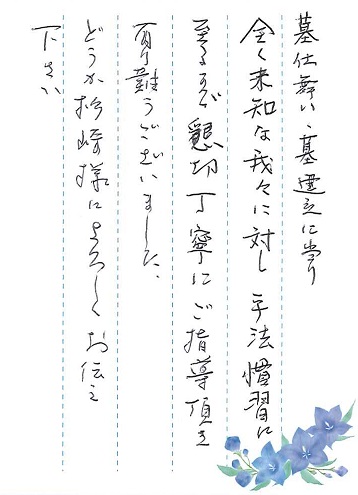 墓仕舞い、墓建立に当り
全く未知な我々に対し 手法慣習に
至るまで懇切丁寧にご指導頂き
有難うございました、
どうか杉崎様によろしくお伝え
下さい